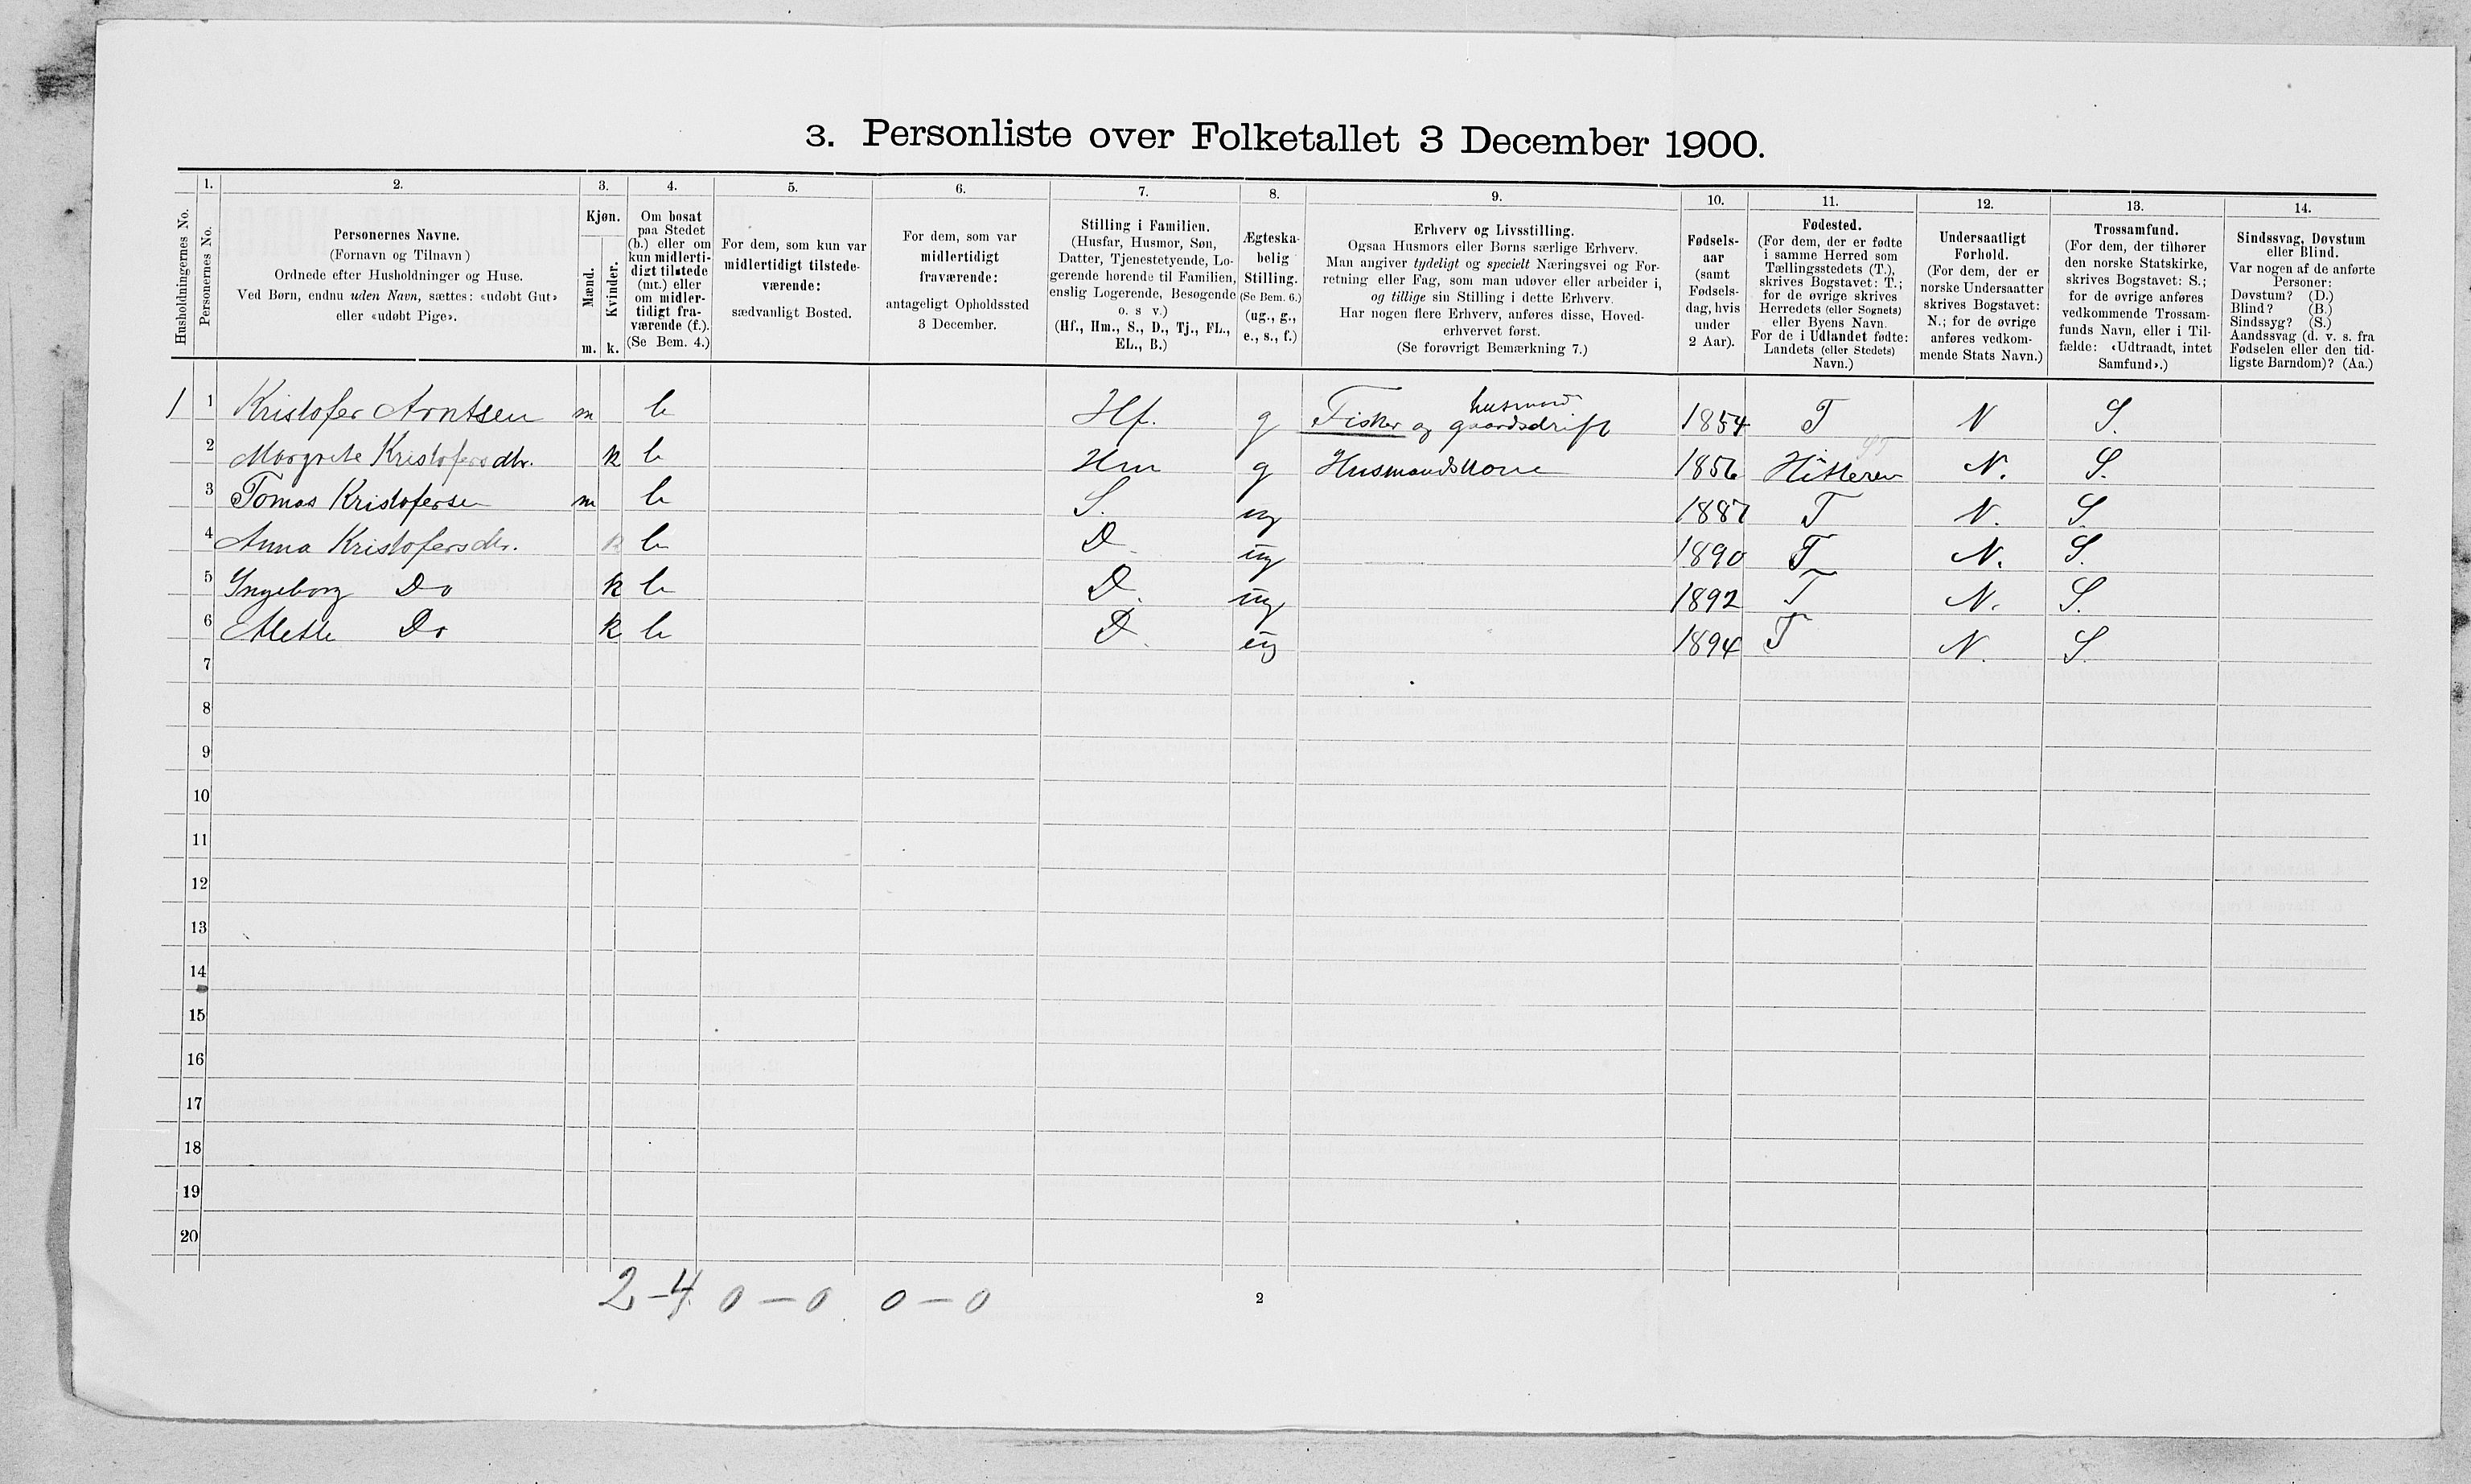 3. Personliste over Folketallet 3 December 1900.
Husholdningernes No.
1.
Personernes No.
2.
Personernes Navne.
(Fornavn og Tilnavn)
Ordnede efter Husholdninger og Huse.
Ved Børn, endnu uden Navn, sættes: «udøbt Gut»
eller «udøbt Pige».
3.
Kjøn.
Mænd.
Kvinder.
m. k.
4.
Om bosat
paa Stedet
(b.) eller om
kun midlerti-
digt tilstede
(mt.) eller
om midler-
tidigt fra-
værende (f.).
(Se Bem. 4.)
5.
For dem, som kun var
midlertidigt tilstede-
værende:
sædvanligt Bosted.
6.
For dem, som var
midlertidigt
fraværende:
antageligt Opholdssted
3 December.
7.
Stilling i Familien.
(Husfar, Husmor, Søn,
Datter, Tjenestetyende, Lo-
gerende hørende til Familien,
enslig Logerende, Besøgende
o. s v.)
(Hf., Hm., S., D., Tj., FL.,
EL., B.)
8.
Ægteska-
belig
Stilling.
(Se Bem. 6.)
(ug., g.,
e., s., f.)
9.
Erhverv og Livsstilling.
Ogsaa Husmors eller Børns særlige Erhverv.
Man angiver tydeligt og specielt Næringsvei og For-
retning eller Fag, som man udøver eller arbeider i,
og tillige sin Stilling i dette Erhverv.
Har nogen flere Erhverv, anføres disse, Hoved-
erhvervet først.
(Se forøvrigt Bemærkning 7.)
10.
Fødsels-
aar
(samt
Fødsels-
dag, hvis
under
2 Aar).
11.
Fødested.
(For dem, der er fødte
i samme Herred som
Tællingsstedets (T.),
skrives Bogstavet: T.;
for de øvrige skrives
Herredets (eller Sognets)
eller Byens Navn.
For de i Udlandet fødte:
Landets (eller Stedets)
Navn.)
12.
Undersaatligt
Forhold.
(For dem, der er
norske Undersaatter
skrives Bogstavet:
N.; for de øvrige
anføres vedkom-
mende Stats Navn.)
13.
Trossamfund.
(For dem, der tilhører
den norske Statskirke,
skrives Bogstavet: S.;
for de øvrige anføres
vedkommende Trossam-
funds Navn, eller i Til-
fælde: «Udtraadt, intet
Samfund».)
14.
Sindssvag, Døvstum
eller Blind.
Var nogen af de anførte
Personer:
Døvstum? (D.)
Blind? (B.)
Sindssyg? (S.)
Aandssvag (d. v. s. fra
Fødselen eller den tid-
ligste Barndom)? (Aa.)
husmand
1 1 Kristofer Arntsen m b Hf. g Fisker og gaardsdrift 1854 T N S.
2 Margrete Kristofersdtr. k b Hm g Husmandskone 1856 Hitteren N. S.
3 Tomas Kristofersen m b S. ug 1887 T N. S.
4 Anna Kristofersdtr. k b D ug 1890 T N. S.
5 Ingeborg Do k b D. ug 1892 T N. S.
6 Mette Do k b D. ug 1894 T N. S.
7
8
9
10
11
12
13
14
15
16
17
18
19
20
2-4 0-0 0-0
2